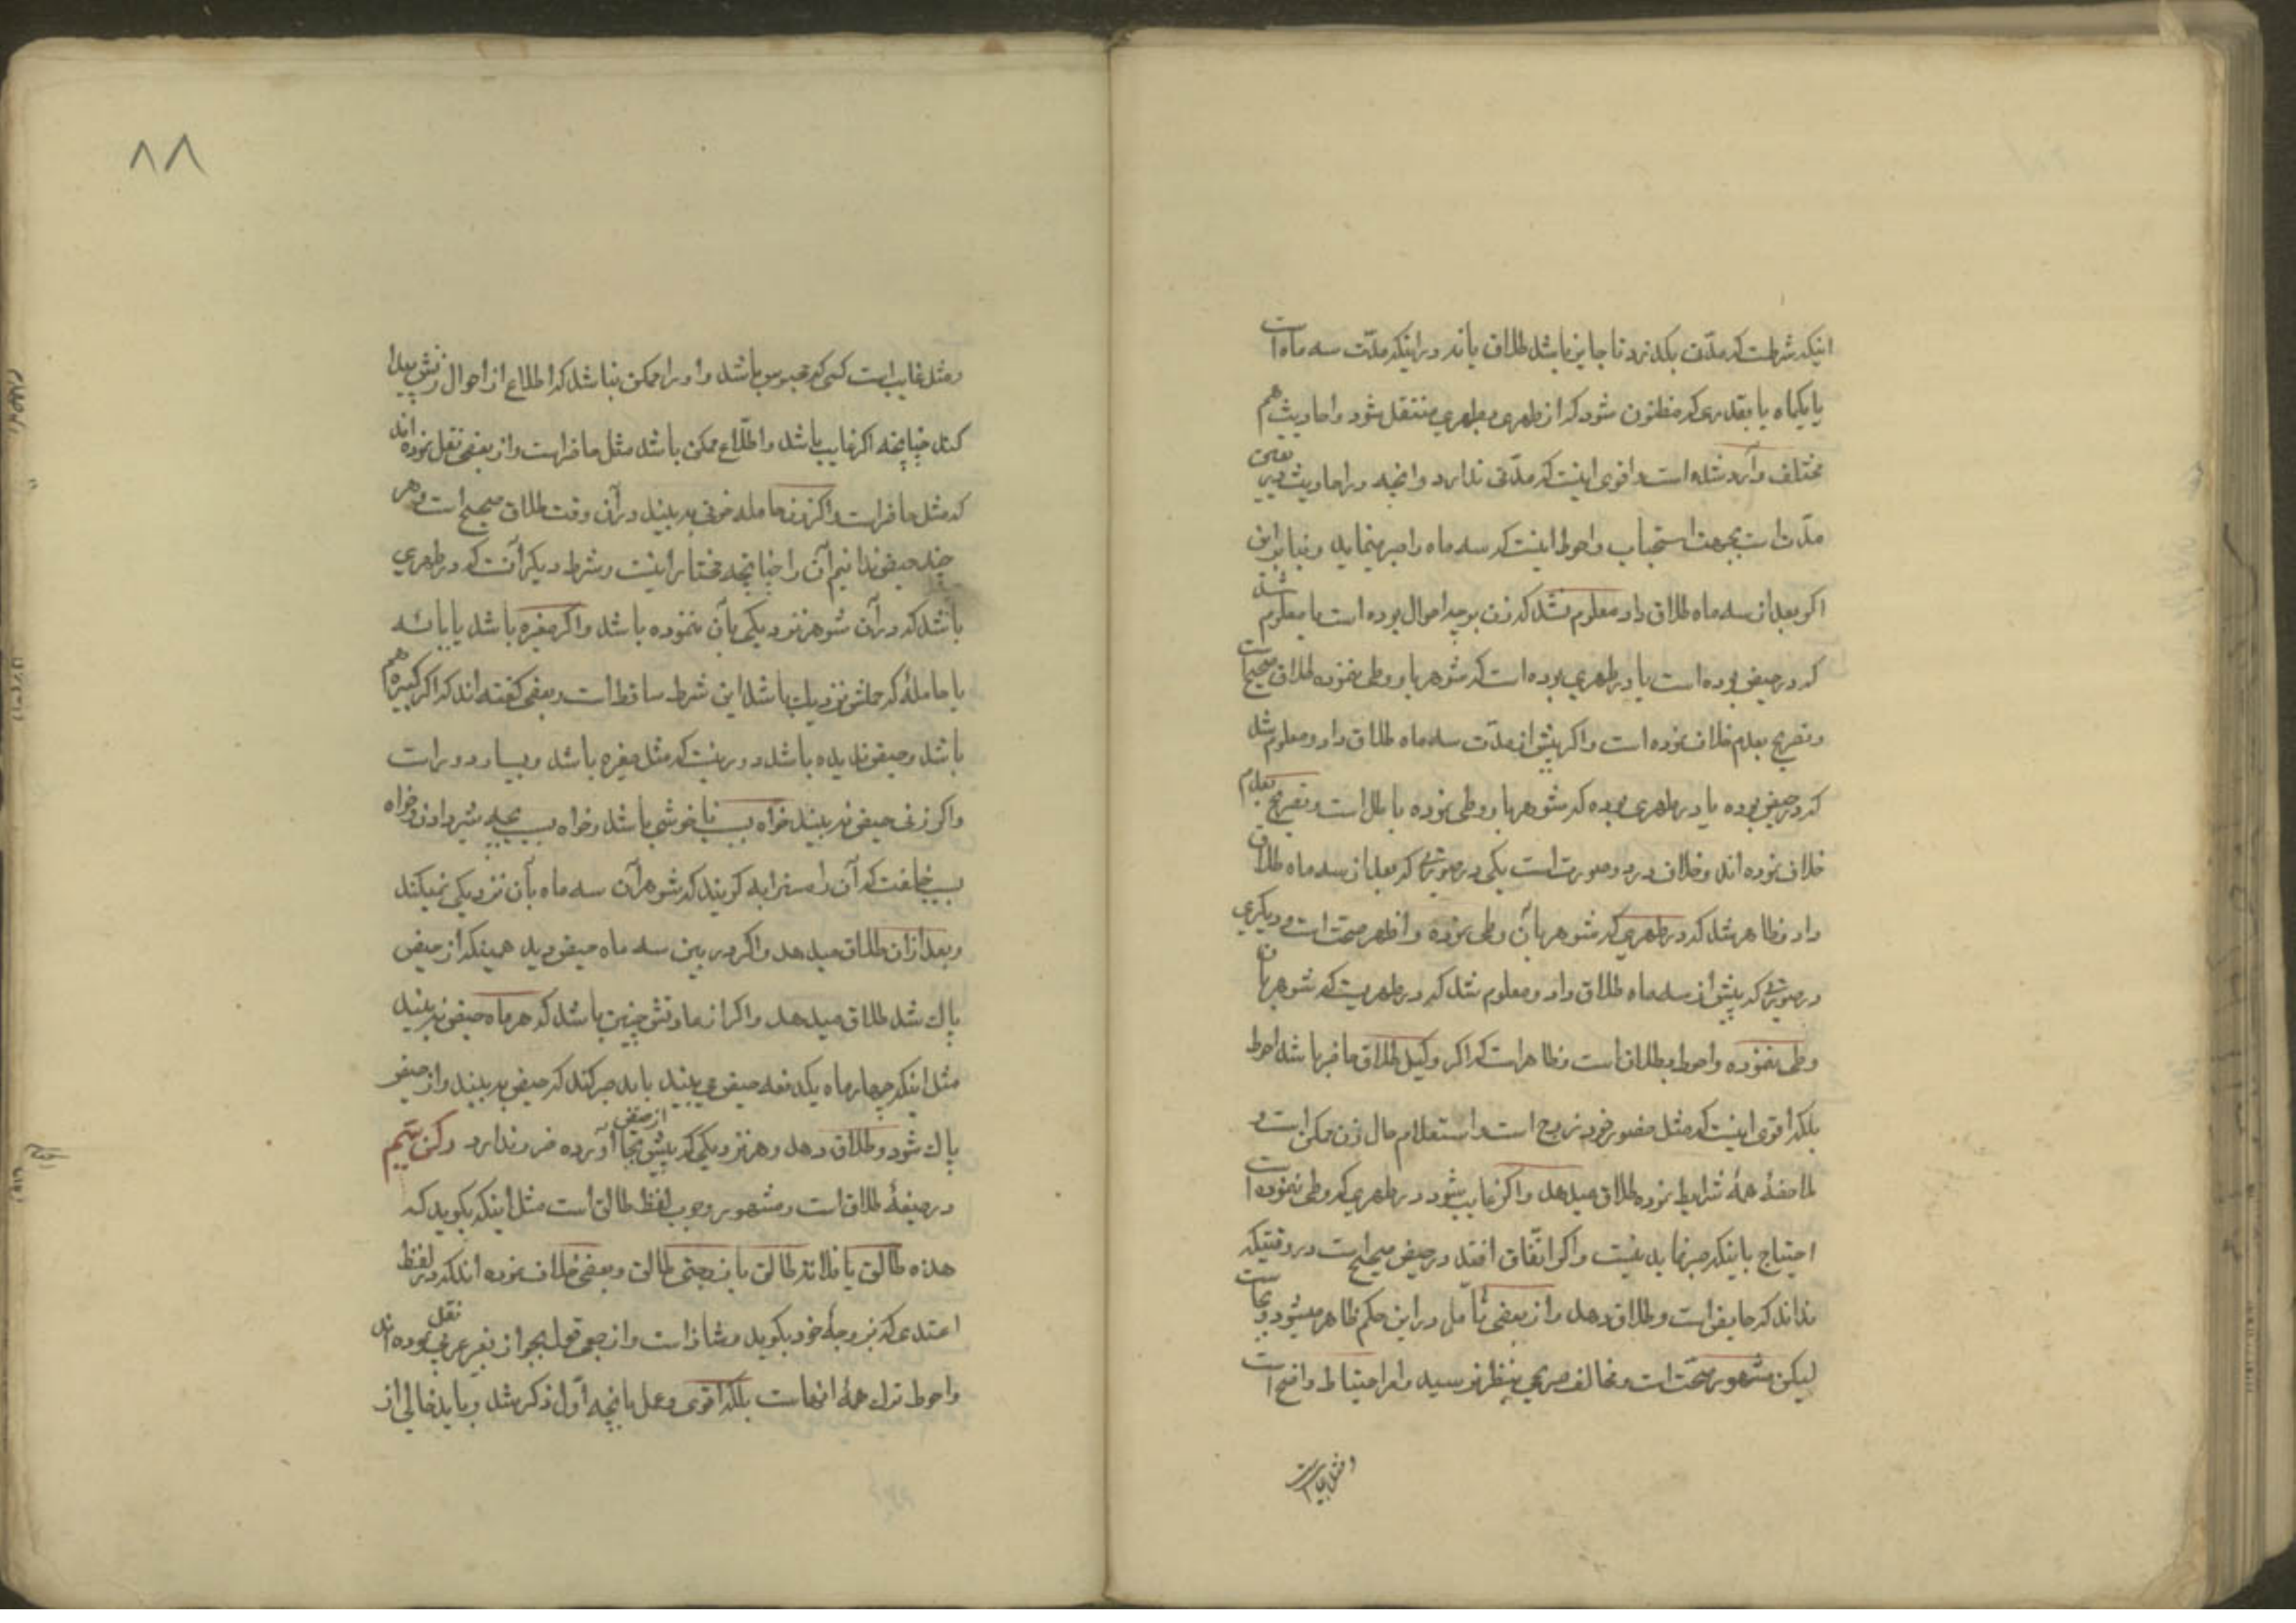 اینکه شرطست که مدّتی بگذرد تا جایز باشد طلاق یا نه و در اینکه مدّت سه ماه است
یا یکماه یا بقدری که مظنون شود که از طهری بطهری منتقل شود و احادیث هم
مختلف وارد شده است و اقوی اینست که مدّتی ندارد و انچه در احادیث تعیین
مدّت است بجهت استحباب و احوط اینست که سه ماه را صبر نماید و بنابراین
اکر بعد از سه ماه طلاق داد معلوم نشد که زن بر چه احوال بوده است یا معلوم شد
که در حیض بوده است یا در طهری بوده است که شوهر باو وطی نموده طلاق صحیح است
و تصریح بعدم خلاف نموده است و اکر پیش از مدّت سه ماه طلاق داد و معلوم شد
که در حیض بوده یا در طهری بوده که شوهر باو وطی نموده باطل است و تصریح بعدم
خلاف نموده اند و خلاف در دو صورت است یکی در صورتی که بعد از سه ماه طلاق
داد و ظاهر شد که در طهری که شوهر بآن وطی نموده و اظهر صحّت است و دیگری
در صورتی که پیش از سه ماه طلاق داد و معلوم شد که در طهریست که شوهر بآن
وطی ننموده و احوط بطلانست و ظاهر است که اکر وکیل طلاق حاضر باشد احوط
بلکه اقوی اینست که مثل حضور خود زوج است و استعلام حال زن ممکن است و
ملاحظهٔ همهٔ شرایط نموده طلاق میدهد و اکر غایب شود در طهری که وطی ننموده است
احتیاج باینکه صبر نماید نیست و اکر اتّفاق افتد در حیض صحیح است در وقتیکه
نداند که حایض است و طلاق دهد و از بعضی تأمّل در این حکم ظاهر میشود و بجاست
لیکن مشهور صحّت است و مخالف صریحی بنظر نرسید و امر احتیاط واضح است
و مثل غایب است
۸۸
و مثل غایب است کسی که محبوس باشد و او را ممکن نباشد که اطلاع از احوال زنش پیدا
کند چنانچه اکر غایب باشد و اطّلاع ممکن باشد مثل حاضر است و از بعضی نقل نموده اند
که مثل حاضر است و اکر زن حامله خونی به بیند در آن وقت طلاق صحیح است و هر
چند حیض ندانیم آن را چنانچه مختار اینست و شرط دیکر آنست که در طهری
باشد که در آن شوهر نزدیکی بآن ننموده باشد و اکر صغیره باشد یا یائسه
یا حاملهٔ که حملش نزدیك باشد این شرط ساقط است و بعضی کفته اند که اکر کبیره هم
باشد و حیض ندیده باشد دور نیست که مثل صغیره باشد و بسیار دور است
و اکر زنی حیض نه بیند خواه بسبب ناخوشی باشد و خواه بسبب بچه شیر دادن و خواه
بسبب خلقت که آن را مسترابه کویند که شوهر آن سه ماه بآن نزدیکی نمیکند
و بعد از ان طلاق میدهد و اکر در بین سه ماه حیض دید همینکه از حیض
پاك شد طلاق میدهد و اکر از عادتش چنین باشد که هر ماه حیض نه بیند
مثل اینکه چهار ماه یکدفعه حیض می بیند باید صبر کند که حیض به بیند و از حیض
پاك شود و طلاق دهد و هر نزدیکی که پیش از حیض بجا آورده ضرر ندارد رکن سیّم
در صیغهٔ طلاق است و مشهور وجوب لفظ طالق است مثل اینکه بکوید که
هذه طالق یا فلانة طالق یا زوجتی طالق و بعضی خلاف نموده اند که در لفظ
اعتدی که بزوجهٔ خود بکوید و شاذ است و از جمعی قول بجواز بغیر عربی نقل نموده اند
و احوط ترك همهٔ انهاست بلکه اقوی و عمل بانچه اوّل ذکر شد و باید خالی از